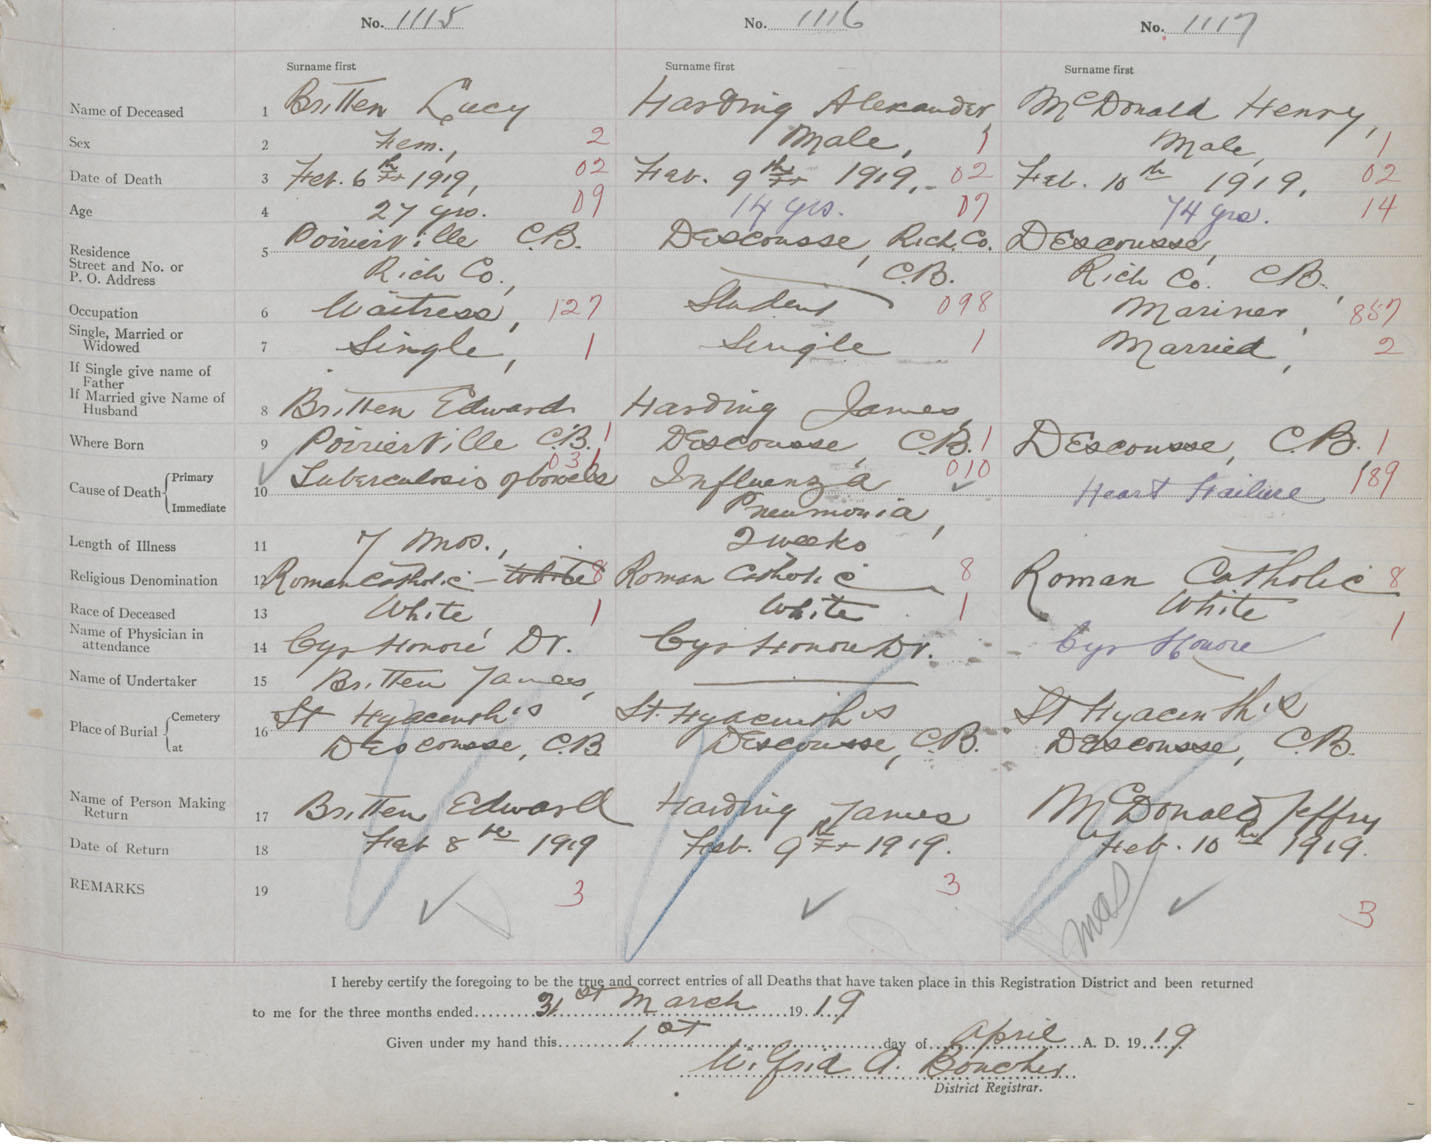 No. 1115 No. 1116 No. 1117
Surname first Surname first Surname first
Name of Deceased 1 Britten Lucy Harding Alexander, McDonald Henry,
Sex 2 Fem., 2 Male, 1 Male, 1
Date of Death 3 Feb. 6th 1919, 02 Feb. 9th 1919, 02 Feb. 10th 1919, 02
Age 4 27 yrs. 09 14 yrs. 07 74 yrs. 14
Residence
Street and No. or
P. O. Address
5 Poirierville C.B. Descousse, Rich. Co. Descousse,
Rich Co., C.B. Rich Co. C.B.,
Occupation 6 Waitress, 127 Student 098 Mariner, 857
Single, Married or
Widowed
7 Single, 1 Single 1 Married, 2
If Single give name of
Father
If Married give Name of
Husband
8 Britten Edward Harding James,
Where Born 9 Poirierville C.B. 1 Descousse, C.B. 1 Descousse, C.B. 1
031 010 189
Cause of Death Primary
Immediate
10 Tuberculosis of bowels Influenza Heart Failure
Pneumonia,
Length of Illness 11 7 Mos., 2 weeks
Religious Denomination 12 Roman Catholic – White 8 Roman Catholic 8 Roman Catholic 8
Race of Deceased 13 White 1 White 1 White 1
Name of Physician in
attendance
14 Cyr Honoré Dr. Cyr Honoré Dr. Cyr Honore
Name of Undertaker 15 Britten James,
Place of Burial Cemetery
at
16 St Hyacinth's St. Hyacinth's St Hyacinth's
Descousse, C.B. Descousse, C.B. Descousse, C.B.
Name of Person Making
Return
17 Britten Edward Harding James McDonald Jeffry
Date of Return 18 Feb 8th 1919 Feb. 9th 1919. Feb. 10th 1919.
REMARKS 19 3 3 3
mas
I hereby certify the foregoing to be the true and correct entries of all Deaths that have taken place in this Registration District and been returned
to me for the three months ended 31st March 1919
Given under my hand this 1st day of April A. D. 1919
Wilfrid A. Boucher
District Registrar.